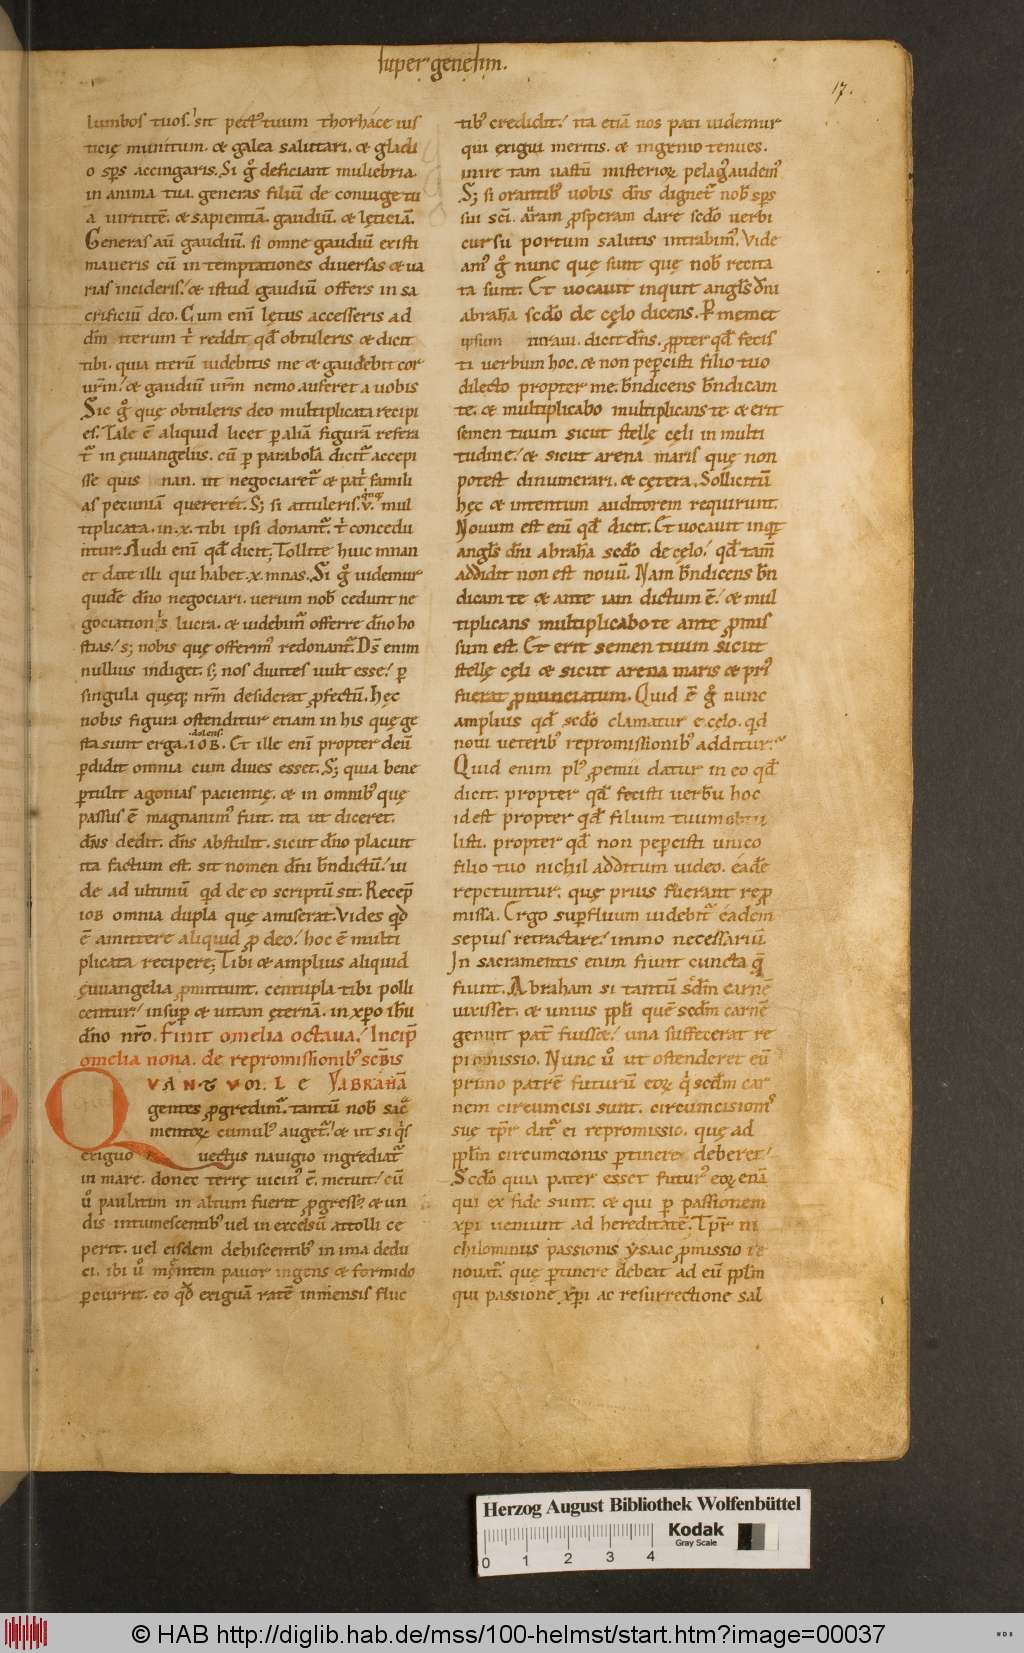 super genesim.
17.
lumbos tuos. sit pect᷒ tuum thorháce ius
ticię munitum. & galea salutari. & gladi
o sp̄s accingaris. Si gͦ deficiant muliebria.
in anima tua. generas filiū de coniuge tu
a uirtutē. & sapientiā. gaudiū. & lęticiā.
Generas aū gaudiū. si omne gaudiū existi
maueris cū in temptationes diuersas & ua
rias incideris. & istud gaudiū offers in sa
crificiū deo. Cum enī lętus accesseris ad
dm̄ iterum t̓ reddit qđ obtuleris & dicit
tibi. quia iterū uidebitis me & gaudebit cor
ur̄m. & gaudiū ur̄m nemo auferet a uobis
Sic gͦ quę obtuleris deo multiplicata recipi
es. Tale ē aliquid licet p̱ aliā figurā referi
t᷒ in ęuuangeliis. cū p̱ parabolā dicit᷒ accepi
sse quis mnan. ut negociaret᷒ & pat̓ famili
as pecuniā quereret. S; si attuleris .v. mul
tiplicata. in .x. tibi ipsi donant᷒. t̓ concedu
ntur. Audi enī qđ dicit; Tollite huic mnan
et date illi qui habet .x. mnas. Si gͦ uidemur
quidē dn̄o negociari. uerum nob̄ cedunt ne
gociationis lucra. & uidebim᷒ offerre dn̄o ho
stias. s; nobis quę offerim᷒ redonant᷒. Ds̄ enim
nullius indiget. s; nos diuites uult esse. p̱
singula quęq; nr̄m desiderat ꝓfectū. Hęc
nobis figura ostenditur etiam in his quę ge
sta sunt erga .IOB. Et ille enī propter deū
p̱didit omnia cum diues esset. S; quia bene
p̱tulit agonias pacientię. & in omnib᷒ quę
passus ē magnanim᷒ fuit. ita ut diceret.
dn̄s dedit. dn̄s abstulit. sicut dn̄o placuit
ita factum est. sit nomen dn̄i bn̄dictū. ui
de ad ultimū qd̄ de eo scriptū sit. Recep̄
IOB omnia dupla quę amiserat. Vides qđ
ē amittere aliquid ꝓ deo. hoc ē multi
plicata recipere; Tibi & amplius aliquid
ęuuangelia ꝓmittunt. centupla tibi polli
centur. insup̱ & uitam ęternā. in xp̄o ihū
dn̄o nr̄o. Finit omelia octaua. Incip̄
omelia nona. de repromissionib᷒ sc̄dis
QVANTVM LE ABRAHĀ
gentes ꝓgredim᷒. tantū nob̄ sac̓
mentoꝝ cumul᷒ auget᷒. & ut si q̓s
exiguo uectus nauigio ingrediat᷒
in mare. donec terrę uicin᷒ ē. metuit. cū
u᷒ paulatim in altum fuerit ꝓgress᷒. & un
dis intumescentib᷒ uel in excelsū attolli ce
perit. uel eisdem dehiscentib᷒ in ima dedu
ci. ibi uͦ mentem pauor ingens & formido
p̱currit. eo qđ exiguā ratē inmensis fluc
tib᷒ credidit. ita etiā nos pati uidemur
qui exigui meritis. & ingenio tenues.
inire tam uastū misterioꝝ pelag᷒ audem᷒
S; si orantib᷒ uobis dn̄s dignet᷒ nob̄ sp̄s
sui sc̄i. auram ꝓsperam dare sc̄do uerbi
cursu portum salutis intrabim᷒. Vide
am᷒ gͦ nunc quę sunt quę nob̄ recita
ta sunt. Et uocauit inquit angl̄s dn̄i
abrahā sc̄do de cęlo dicens. P̱ memet
ipsum iuraui. dicit dn̄s. ꝓpter qđ fecis
ti uerbum hoc. & non pep̱cisti filio tuo
dilecto propter me. bn̄dicens bn̄dicam
te. & multiplicabo multiplicans te & erit
semen tuum sicut stellę cęli in multi
tudine. & sicut arena maris quę non
potest dinumerari. & cętera. Sollicitū
hęc & intentum auditorem requirunt.
Nouum est enī qđ dicit. Et uocauit inqt̓
angl̄s dn̄i abrahā sc̄do de cęlo. qđ tam̄
addidit non est nouū. Nam bn̄dicens bn̄
dicam te & ante iam dictum ē. & mul
tiplicans multiplicabo te ante ꝓmis
sum est. Et erit semen tuum sicut
stellę cęli & sicut arena maris & pri᷒
fuerat ꝓnunciatum. Quid ē gͦ nunc
amplius qđ sc̄do clamatur e cęlo. qđ
noui ueterib᷒ repromissionib᷒ additur.
Quid enim pl᷒ ꝓemii datur in eo qđ
dicit. propter qđ fecisti uerbū hoc
idest propter qđ filium tuum obtu
listi. propter qđ non pep̱cisti unico
filio tuo nichil additum uideo. eadē
repetuntur. quę prius fuerant rep̱
missa. Ergo sup̱fluum uidebit᷒ eadem
sepius retractare. immo necessariū
In sacramentis enim fiunt cuncta q̄
fiunt. Abraham si tantū sc̄dm carnē
uixisset. & unius pp̄li quē sc̄dm carnē
genuit pat̓ fuisset. una suffecerat re
promissio. Nunc uͦ ut ostenderet eū
primo patrē futurū eoꝝ q̓ sc̄dm car
nem circumcisi sunt. circumcisionis
suę tp̄r dat᷒ ei repromissio. quę ad
pp̄lm circumcisionis p̱tinere deberet.
Sc̄do quia pater esset futur᷒ eoꝝ etiā
qui ex fide sunt. & qui p̱ passionem
xp̄i ueniunt ad hereditatē. Tp̄r ni
chilominus passionis ysaac ꝓmissio re
nouat᷒. quę p̱tinere debeat ad eū pp̄lm
qui passione xp̄i ac resurrectione sal
Herzog August Bibliothek Wolfenbüttel
Kodak
Gray Scale
0 1 2 3 4
© HAB http://diglib.hab.de/mss/100-helmst/start.htm?image=00037